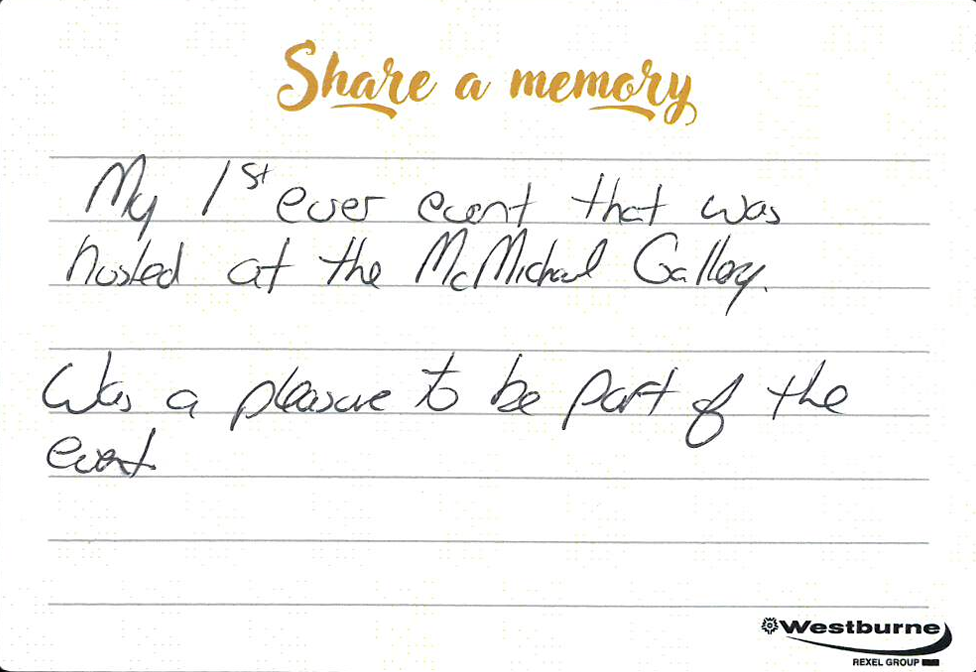 Share a memory
My 1st ever event that was
hosted at the McMichael Gallery.
Was a pleasure to be part of the
event.
Westburne
REXEL GROUP